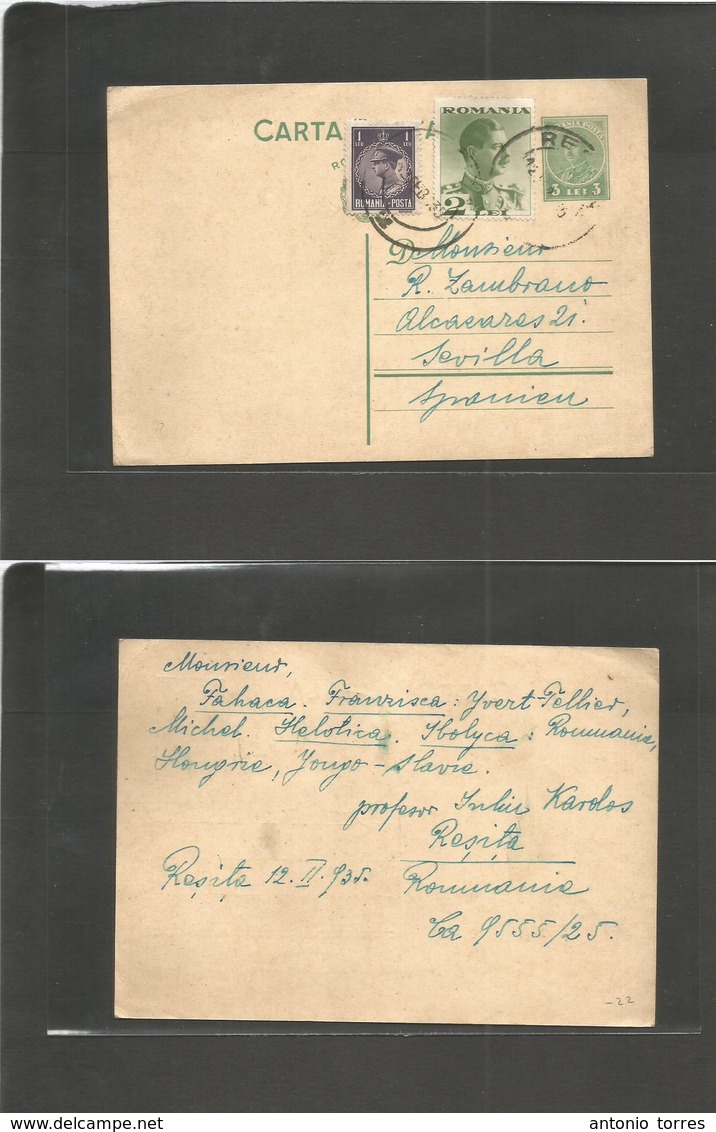 CARTA
1 LEU 1 LEU
ROMANIA-POSTA
ROMANIA
2 LEI
3 LEI 3
REȘ
Monsieur
R. Zambrano
Alcazares 21.
Sevilla
Spanien
Monsieur,
Fahaca. Franzisca: Yvert-Tellier,
Michel. Helvtica. Ibolyca: Roumania,
Hongrie, Yougo-Slavie.
profesor Iuliu Kardos
Reșița
Reșița 12. II. 935. Roumania
Ca 9555/25.
-22
https://www.delcampe.net
antonio torres